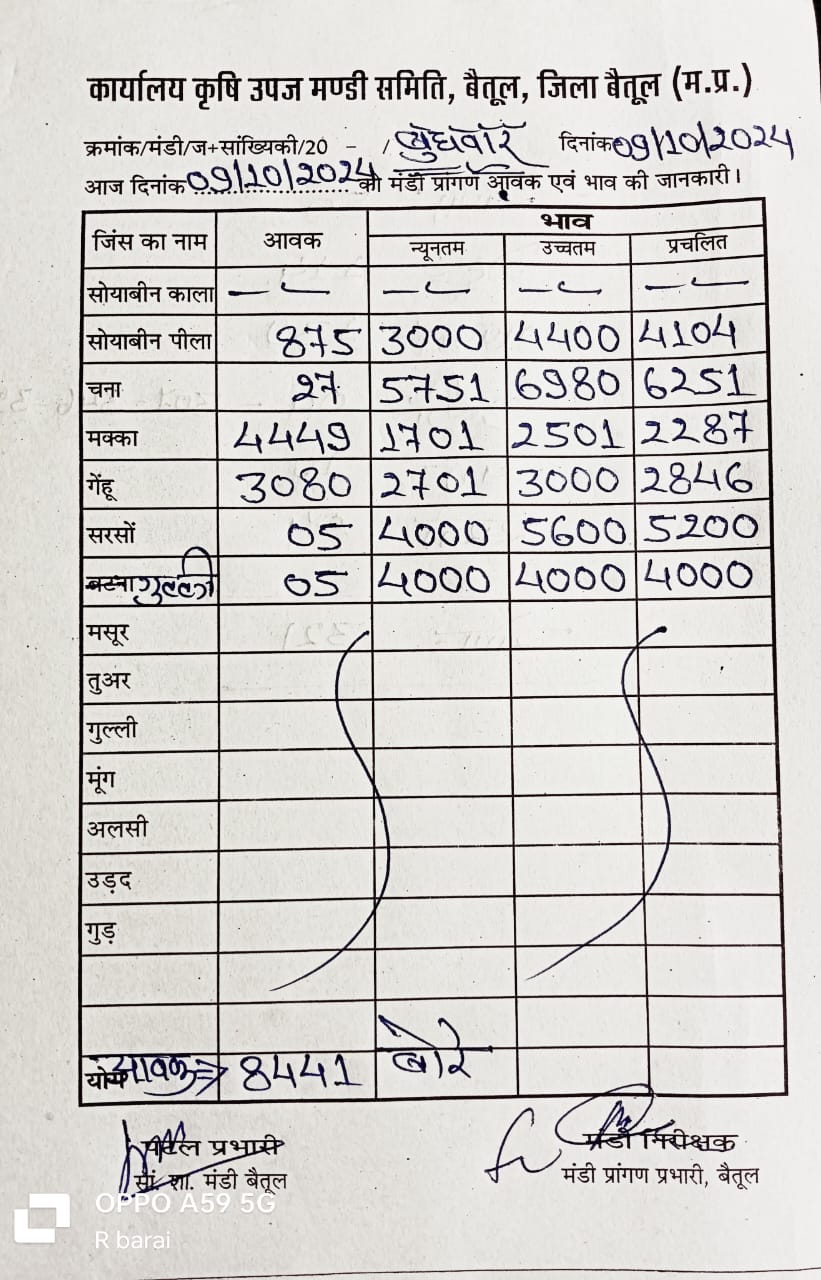 कार्यालय कृषि उपज मण्डी समिति, बैतूल, जिला बैतूल (म.प्र.)
क्रमांक/मंडी/ज+सांख्यिकी/20 - / बुधवार दिनांक 09/10/2024
आज दिनांक 09/10/2024 को मंडी प्रांगण आवक एवं भाव की जानकारी।
जिंस का नाम आवक भाव
न्यूनतम उच्चतम प्रचलित
सोयाबीन काला — — — — — — — —
सोयाबीन पीला 875 3000 4400 4104
चना 27 5751 6980 6251
मक्का 4449 1701 2501 2287
गेंहू 3080 2701 3000 2846
सरसों 05 4000 5600 5200
बटना गुल्ली 05 4000 4000 4000
मसूर
तुअर
गुल्ली
मूंग
अलसी
उड़द
गुड़
योग आवक ⇒ 8441 बोरे
प्रभारी मंडी निरीक्षक
सां. शा. मंडी बैतूल मंडी प्रांगण प्रभारी, बैतूल
OPPO A59 5G
R barai